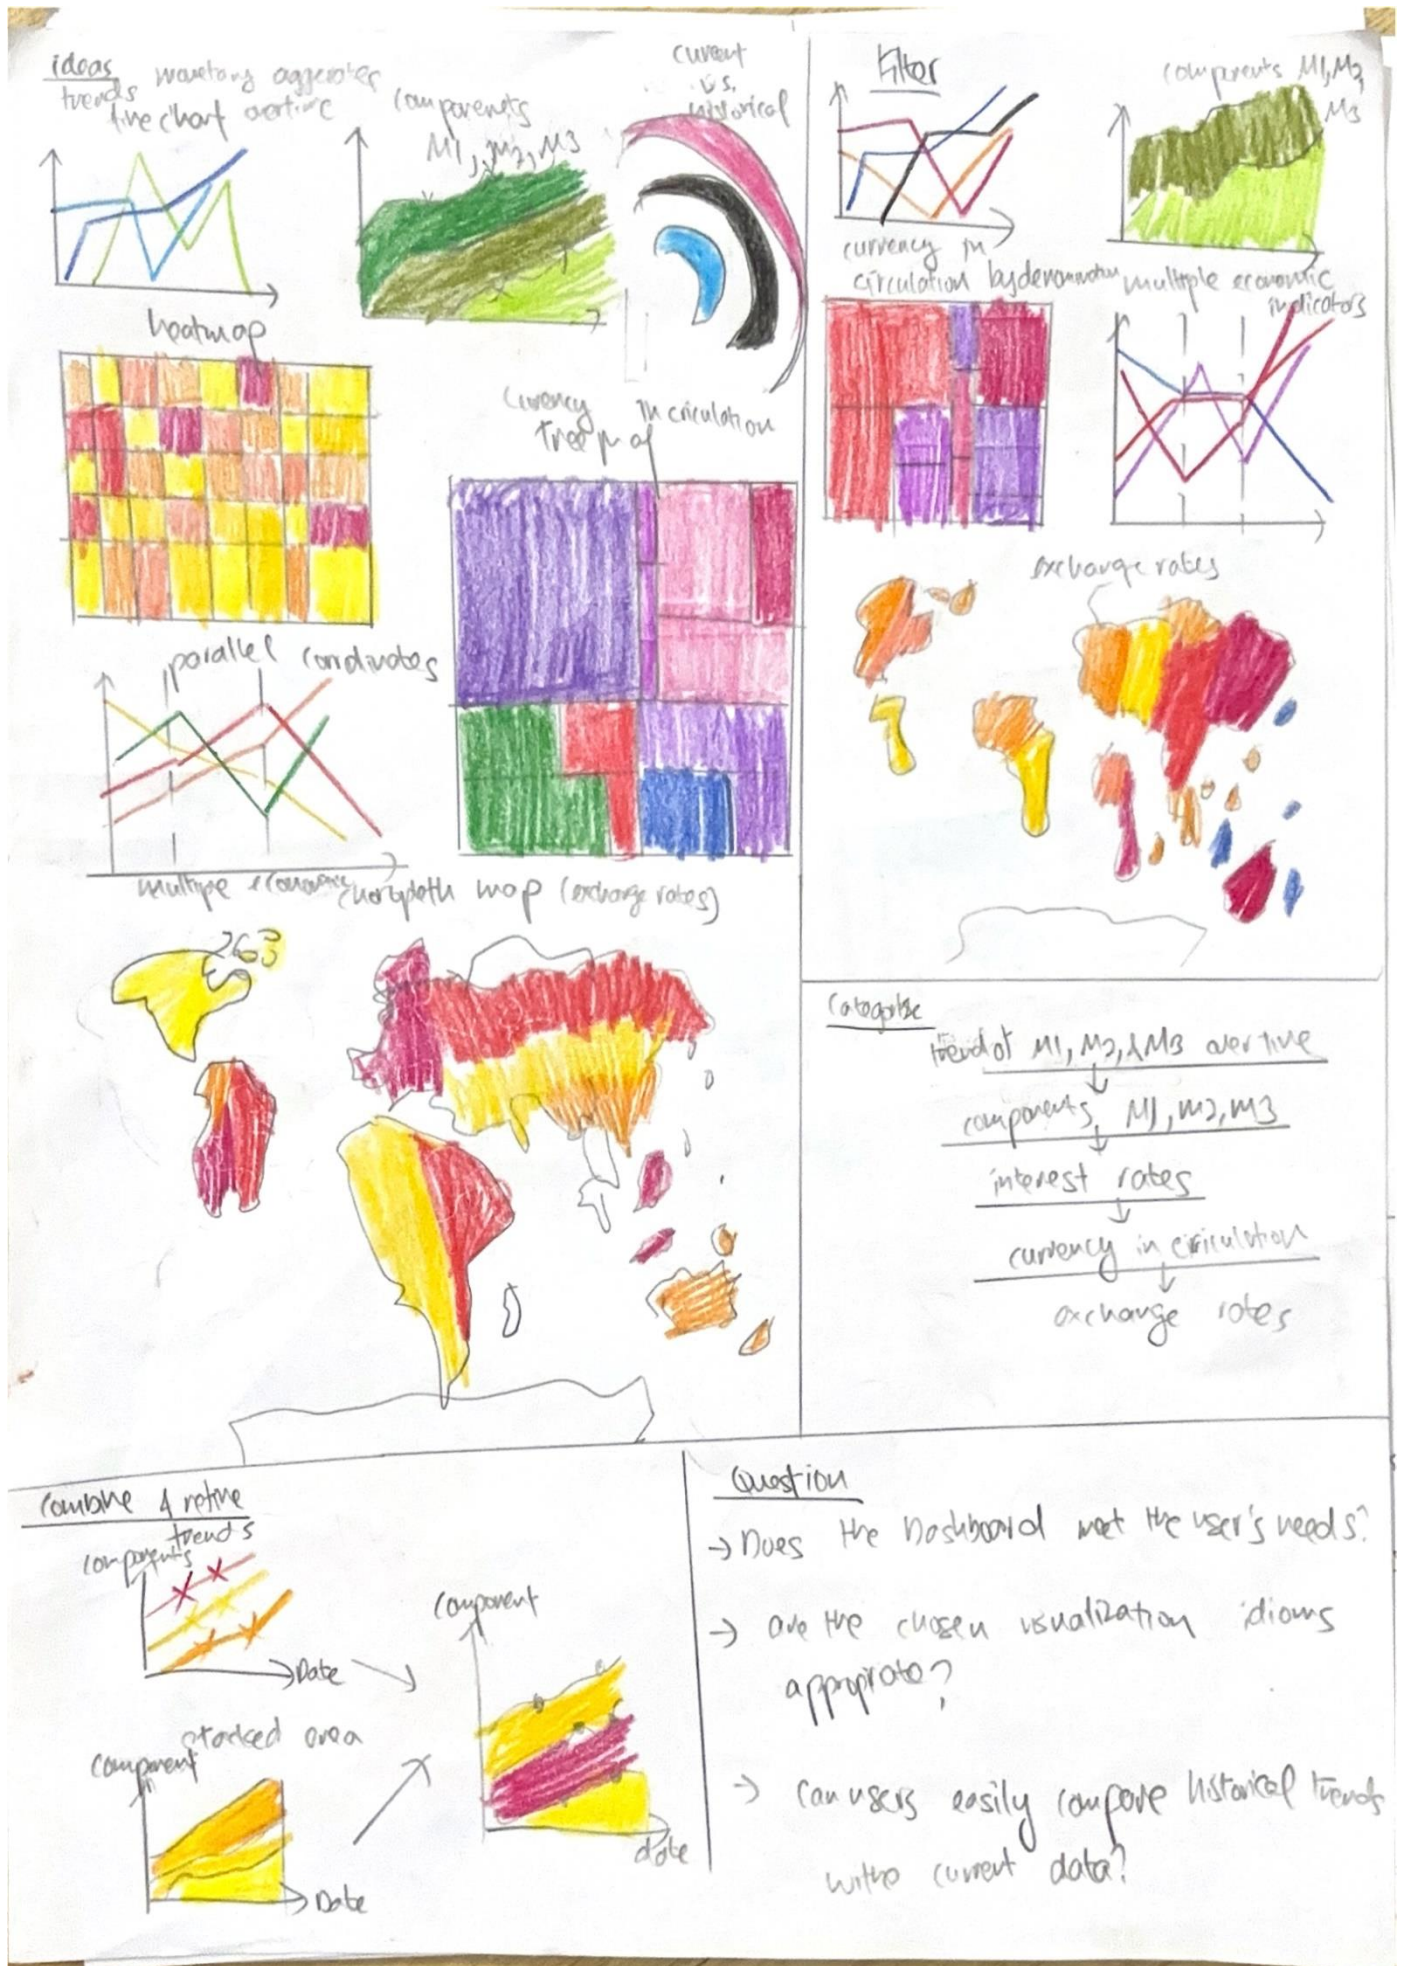 ideas
trends monetary aggerates
line chart overtime
components
M1, M2, M3
current
vs.
historical
heatmap
currency in criculation
tree m of
parallel coordinates
multipe economic
choropleth map (exchange rates)
Filter
components M1, M2,
M3
currency in
circulation by denomination
multiple economic
indicators
exchange rates
Categorize
trend of M1, M2, & M3 over time
components, M1, M2, M3
interest rates
currency in circulation
exchange rates
Combine & refine
trends
components
Date
stacked area
component
Date
component
date
Question
→ Does the Dashboard meet the user's needs?
→ are the chosen visualization idioms
appropriate?
→ can users easily compare historical trends
with current data?